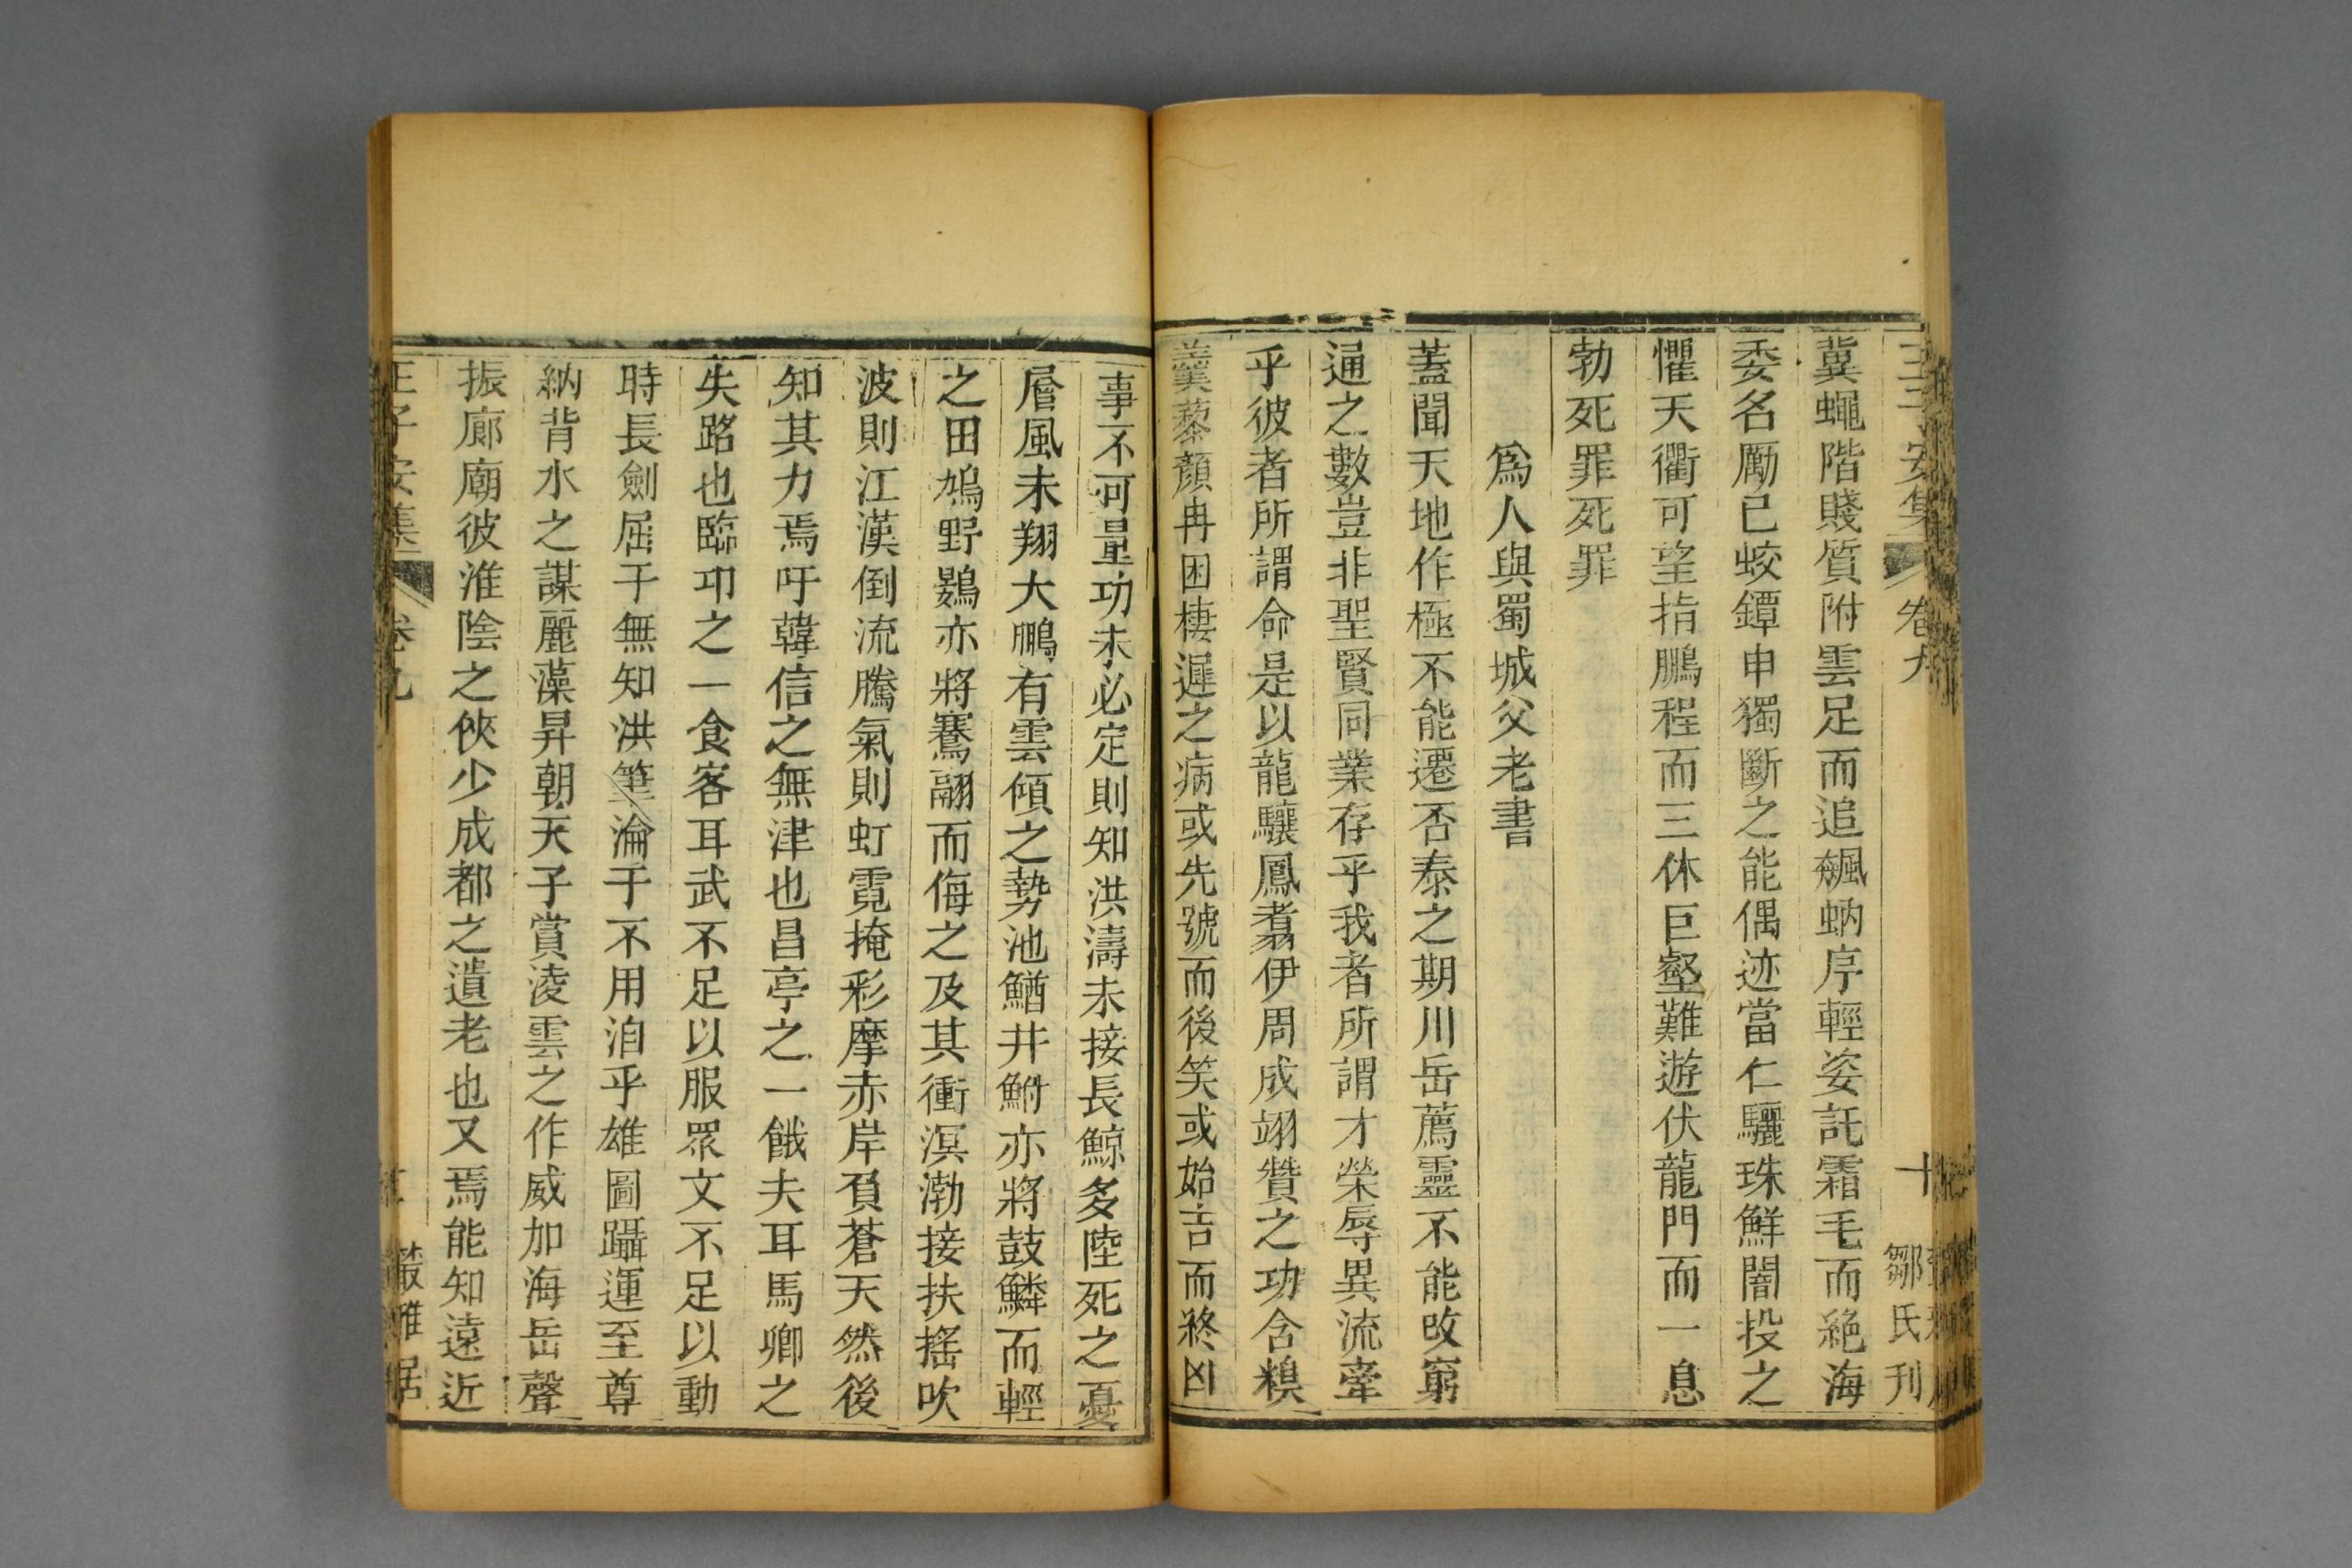 王子安集 卷九 十 鄒氏刊
冀蠅階賤質附雲足而追飆蚋序輕姿託霜毛而絕海
委名勵己蛟鐔申獨斷之能偶迹當仁驪珠鮮闇投之
懼天衢可望指鵬程而三休巨壑難遊伏龍門而一息
勃死罪死罪
爲人與蜀城父老書
蓋聞天地作極不能遷否泰之期川岳薦靈不能改窮
通之數豈非聖賢同業存乎我者所謂才榮辱異流牽
乎彼者所謂命是以龍驤鳳翥伊周成翊贊之功含糗
羹藜顏冉困棲遲之病或先號而後笑或始吉而終凶
事不可量功未必定則知洪濤未接長鯨多陸死之憂
層風未翔大鵬有雲傾之勢池鰌井鮒亦將鼓鱗而輕
之田鳩野鷃亦將騫翮而侮之及其衝溟渤接扶搖吹
波則江漢倒流騰氣則虹霓掩彩摩赤岸負蒼天然後
知其力焉吁韓信之無津也昌亭之一餓夫耳馬卿之
失路也臨邛之一食客耳武不足以服眾文不足以動
時長劍屈于無知洪筆淪于不用洎乎雄圖躡運至尊
納背水之謀麗藻昇朝天子賞淩雲之作威加海岳聲
振廊廟彼淮陰之俠少成都之遺老也又焉能知遠近
王子安集 卷九 叢雅居